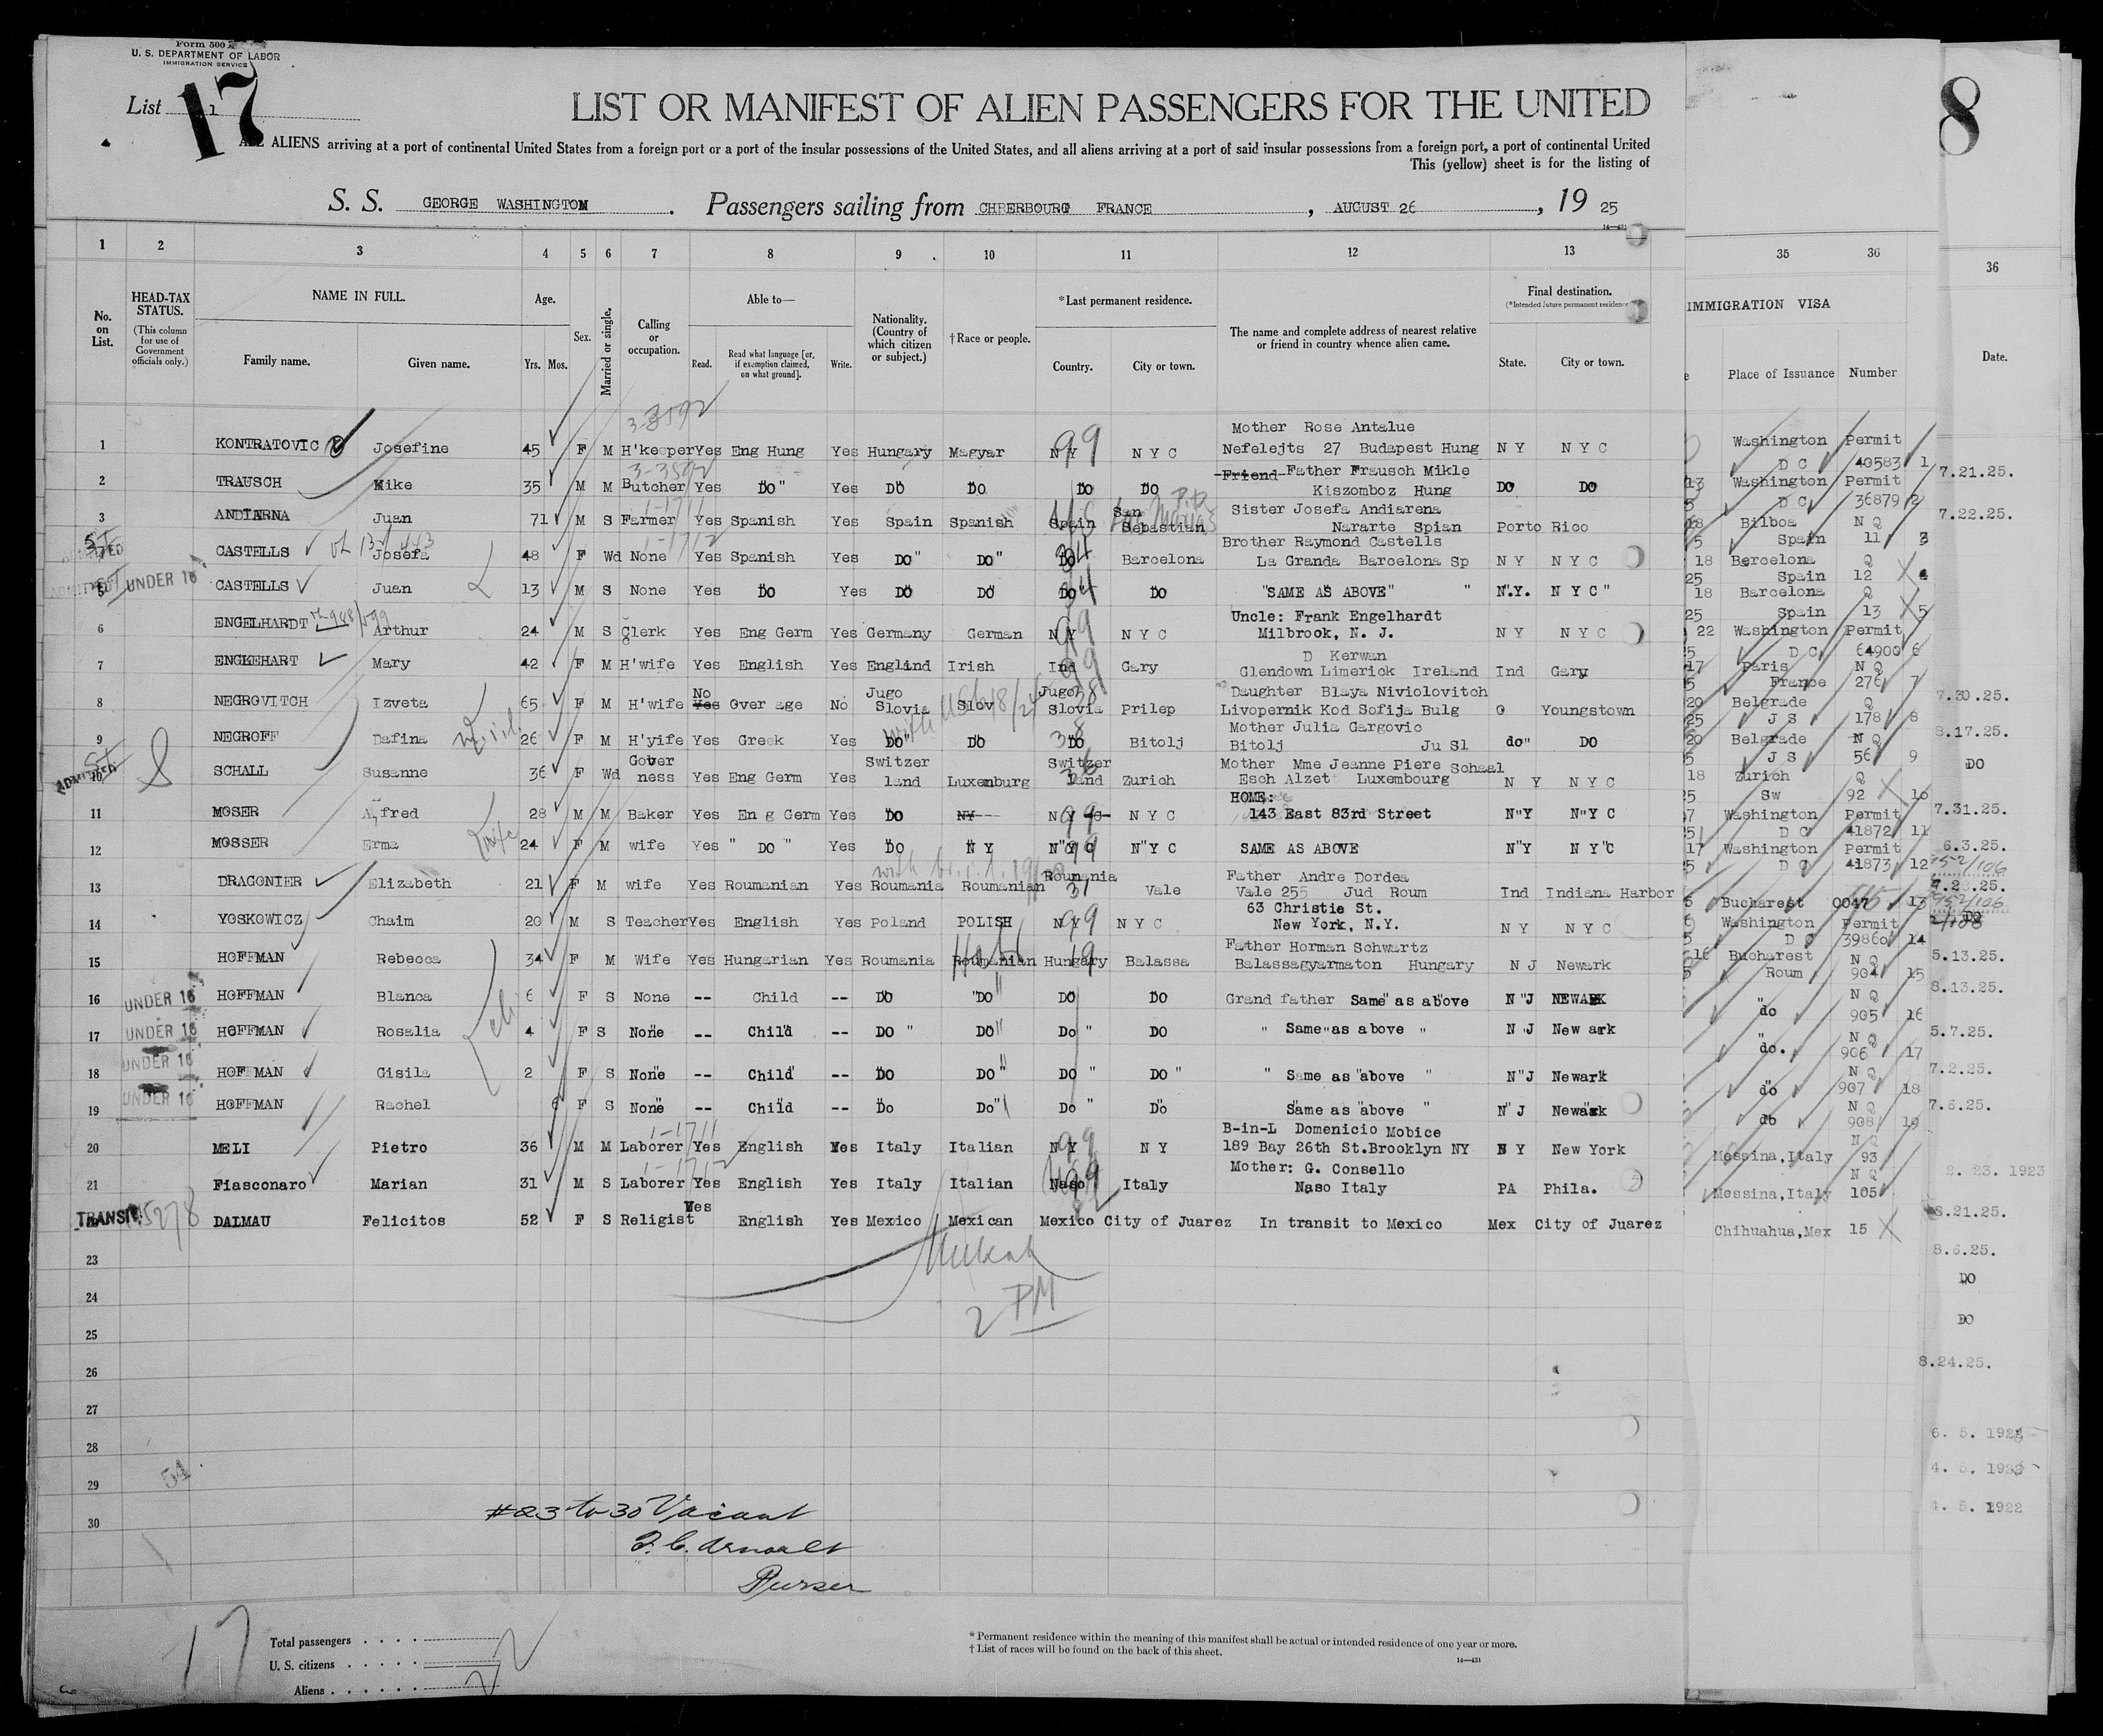 Form 500
U. S. DEPARTMENT OF LABOR
IMMIGRATION SERVICE
List 1
17
8
LIST OR MANIFEST OF ALIEN PASSENGERS FOR THE UNITED
ALL ALIENS arriving at a port of continental United States from a foreign port or a port of the insular possessions of the United States, and all aliens arriving at a port of said insular possessions from a foreign port, a port of continental United
This (yellow) sheet is for the listing of
S. S. GEORGE WASHINGTON . Passengers sailing from CHBERBOURG FRANCE , AUGUST 26 , 19 25
1 2 3 4 5 6 7 8 9 10 11 12 13 35 36 36
No. on List.
HEAD-TAX STATUS.
(This column for use of Government officials only.)
NAME IN FULL.
Family name. Given name.
Age.
Yrs. Mos.
Sex.
Married or single.
Calling or occupation.
Able to—
Read. Read what language [or, if exemption claimed, on what ground]. Write.
Nationality. (Country of which citizen or subject.)
†Race or people.
*Last permanent residence.
Country. City or town.
The name and complete address of nearest relative or friend in country whence alien came.
Final destination.
(*Intended future permanent residence
State. City or town.
IMMIGRATION VISA
Place of Issuance Number
Date.
1 KONTRATOVIC Josefine 45 F M H'keeper Yes Eng Hung Yes Hungary Magyar N Y 99 N Y C Mother Rose Antalue Nefelejts 27 Budapest Hung N Y N Y C Washington D C Permit 40583 1
2 TRAUSCH Mike 35 M M Butcher Yes Do " Yes DO DO DO DO Friend Father Frausch Mikle Kiszomboz Hung DO DO Washington D C Permit 36879 2
3 ANDIARNA Juan 71 M S Farmer Yes Spanish Yes Spain Spanish Spain San Sebastian Sister Josefa Andiarena Nararte Spian Porto Rico Bilboa Spain N Q 11 3
4 CASTELLS Josefa 48 F Wd None Yes Spanish Yes DO " DO " DO Barcelona Brother Raymond Castells La Granda Barcelona Sp N Y N Y C Barcelona Spain Q 12 4
5 UNDER 16 CASTELLS Juan 13 M S None Yes DO Yes DO DO DO DO "SAME AS ABOVE" " N.Y. N Y C " Barcelona Spain Q 13 5
6 ENGELHARDT Arthur 24 M S Clerk Yes Eng Germ Yes Germany German N Y 99 N Y C Uncle: Frank Engelhardt Milbrook, N. J. N Y N Y C Washington D C Permit 64900 6
7 ENGKEHART Mary 42 F M H'wife Yes English Yes Englind Irish Ind 99 Gary D Kerwan Glendown Limerick Ireland Ind Gary Paris France N Q 276 7
8 NEGROVITCH Izveta 65 F M H'wife Yes No Over age No Jugo Slovia Slov Jugo Slovia Prilep Daughter Blaya Niviolovitch Livopernik Kod Sofija Bulg O Youngstown Belgrade J S Q 178 8
9 NEGROFF Dafina 26 F M H'yife Yes Greek Yes DO DO DO Bitolj Mother Julia Gargovic Bitolj Ju Sl do" DO Belgrade J S N Q 56 9
10 ADMITTED SCHALL Susanne 36 F Wd Gover ness Yes Eng Germ Yes Switzer land Luxenburg Switzer land Zurich Mother Mme Jeanne Piere Schaal Esch Alzet Luxembourg N Y N Y C Zurich Sw Q 92 10
11 MOSER Alfred 28 M M Baker Yes En g Germ Yes DO NY N Y 99 N Y C HOME: 143 East 83rd Street N"Y N"Y C Washington D C Permit 41872 11
12 MOSSER Erma 24 F M wife Yes " DO " Yes DO N Y N"Y C 99 N"Y C SAME AS ABOVE N"Y N Y"C Washington D C Permit 41873 12
13 DRAGONIER Elizabeth 21 F M wife Yes Roumanian Yes Roumania Roumanian Roumania 31 Vale Father Andre Dordea Vale 255 Jud Roum Ind Indiana Harbor Bucharest 0047 13
14 YOSKOWICZ Chaim 20 M S Teacher Yes English Yes Poland POLISH N Y 99 N Y C 63 Christie St. New York, N.Y. N Y N Y C Washington D C Permit 39860 14
15 HOFFMAN Rebecca 34 F M Wife Yes Hungarian Yes Roumania Roumanian Heb Hungary 19 Balassa Father Horman Schwartz Balassagyarmaton Hungary N J Newark Bucharest Roum N Q 904 15
16 UNDER 16 HOFFMAN Blanca 6 F S None -- Child -- DO "DO DO DO Grand father Same" as above N "J NEWARK do N Q 905 16
17 UNDER 16 HOFFMAN Rosalia 4 F S None -- Child -- DO " DO" Do " DO " Same"as above " N J New ark do. N Q 906 17
18 UNDER 16 HOFFMAN Gisila 2 F S None -- Child -- DO DO" DO " DO " " Same as "above " N"J Newark do N Q 907 18
19 UNDER 16 HOFFMAN Rachel 6 F S None -- Child -- Do Do" Do " Do Same as "above " N" J Newark do N Q 908 19
20 MELI Pietro 36 M M Laborer Yes English Yes Italy Italian N Y 99 N Y B-in-L Domenicio Mobice 189 Bay 26th St.Brooklyn NY N Y New York Messina,Italy N Q 93
21 Fiasconaro Marian 31 M S Laborer Yes English Yes Italy Italian Naso 99 Italy Mother: G. Consello Naso Italy PA Phila. Messina,Italy N Q 105
TRANSIT DALMAU Felicitos 52 F S Religist Yes English Yes Mexico Mexican Mexico City of Juarez In transit to Mexico Mex City of Juarez Chihuahua,Mex 15
23
24
25
26
27
28
29
30
7.21.25.
7.22.25.
7.30.25.
8.17.25.
DO
7.31.25.
6.3.25.
7.28.25.
DO
5.13.25.
8.13.25.
5.7.25.
7.2.25.
7.6.25.
2. 23. 1923
8.21.25.
8.6.25.
DO
DO
8.24.25.
4. 5. 1922
2 PM
#23 to 30 Vacant
Purser
17
Total passengers
U. S. citizens
Aliens 22
* Permanent residence within the meaning of this manifest shall be actual or intended residence of one year or more.
† List of races will be found on the back of this sheet.
14—431